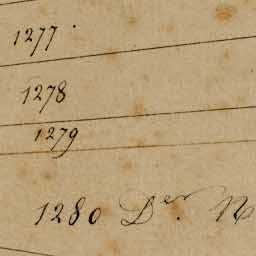 1277
1278
1279
1280 Der.